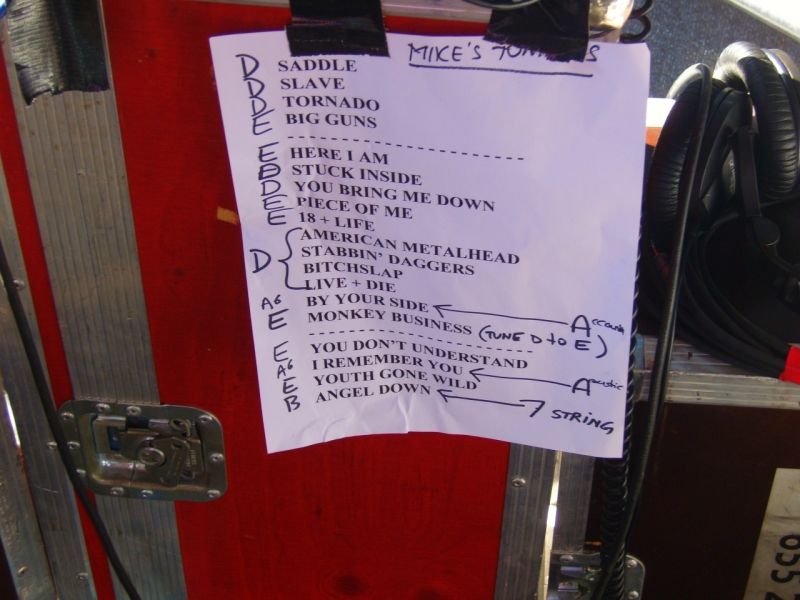 MIKE'S
D SADDLE
D SLAVE
D TORNADO
E BIG GUNS
E HERE I AM
D STUCK INSIDE
D YOU BRING ME DOWN
E PIECE OF ME
E 18 + LIFE
D AMERICAN METALHEAD
STABBIN' DAGGERS
BITCHSLAP
LIVE + DIE
AG BY YOUR SIDE
E MONKEY BUSINESS (TUNE D to E)
E YOU DON'T UNDERSTAND
AG I REMEMBER YOU Acoustic
E YOUTH GONE WILD
B ANGEL DOWN 7 STRING
655 2